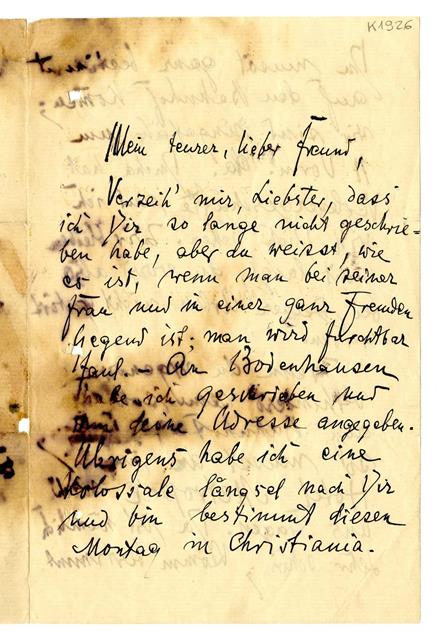 K1926
Mein teurer, lieber Freund,
Verzeih' mir, Liebster, dass
ich Dir so lange nicht geschrie=
ben habe, aber du weisst, wie
es ist, wenn man bei seiner
Frau und in einer ganz fremden
Gegend ist: man wird furchtbar
faul. – An Bodenhausen
habe ich geschrieben und
ihm deine Adresse angegeben.
Übrigens habe ich eine
kolossale längsel nach Dir
und bin bestimmt diesen
Montag in Christiania.